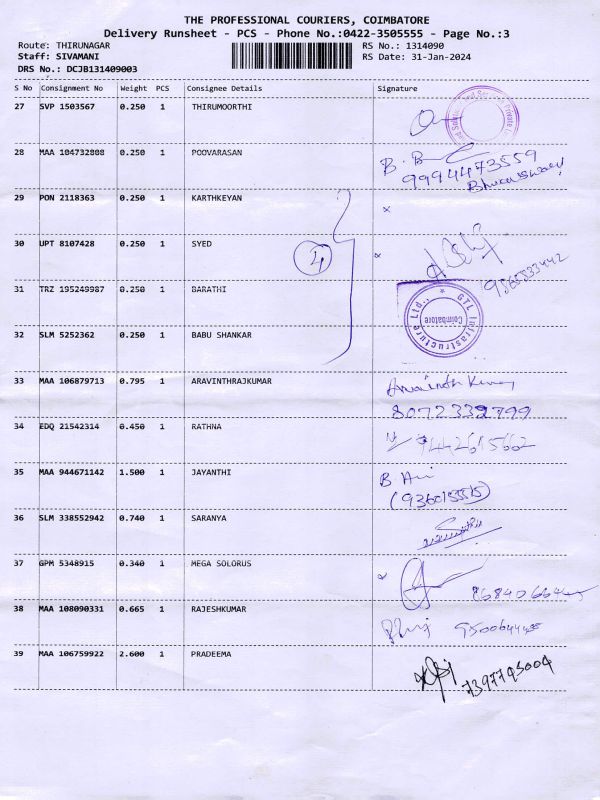 THE PROFESSIONAL COURIERS, COIMBATORE
Delivery Runsheet - PCS - Phone No.:0422-3505555 - Page No.:3
Route: THIRUNAGAR
RS No.: 1314090
Staff: SIVAMANI
RS Date: 31-Jan-2024
DRS No.: DCJB131409003
S No Consignment No Weight PCS Consignee Details Signature
27 SVP 1503567 0.250 1 THIRUMOORTHI
28 MAA 104732808 0.250 1 POOVARASAN
9994473559
Bhuvaneswary
29 PON 2118363 0.250 1 KARTHKEYAN
30 UPT 8107428 0.250 1 SYED
4
9865833442
31 TRZ 195249987 0.250 1 BARATHI
GTL Infrastructure Ltd.,
Coimbatore
32 SLM 5252362 0.250 1 BABU SHANKAR
33 MAA 106879713 0.795 1 ARAVINTHRAJKUMAR
8072332799
34 EDQ 21542314 0.450 1 RATHNA
9442615662
35 MAA 944671142 1.500 1 JAYANTHI
36 SLM 338552942 0.740 1 SARANYA
37 GPM 5348915 0.340 1 MEGA SOLORUS
38 MAA 108090331 0.665 1 RAJESHKUMAR
39 MAA 106759922 2.600 1 PRADEEMA
7397795004